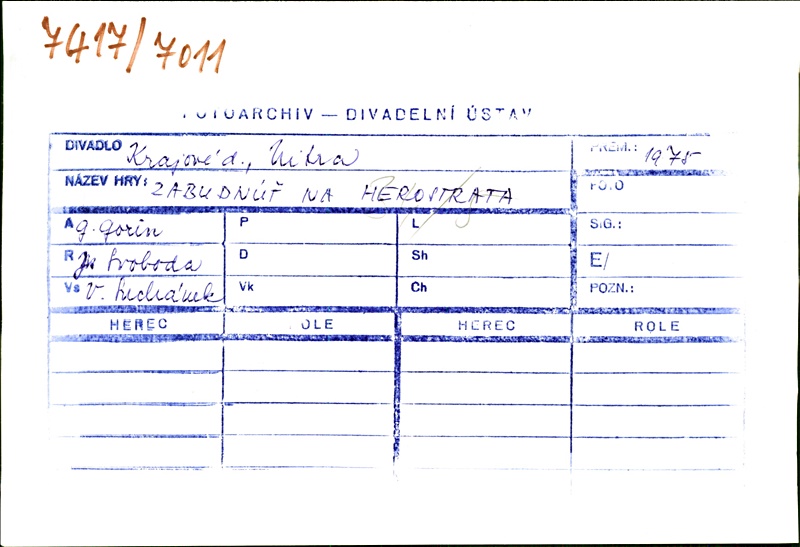 7417/7011
FOTOARCHIV — DIVADELNÍ ÚSTAV
DIVADLO Krajové d., Nitra PREM.: 1975
NÁZEV HRY: ZABUDNÚŤ NA HEROSTRATA FOTO
A G. Gorin P L SIG.:
R Svoboda D Sh E/
Vs V. Suchánek Vk Ch POZN.:
HEREC ROLE HEREC ROLE